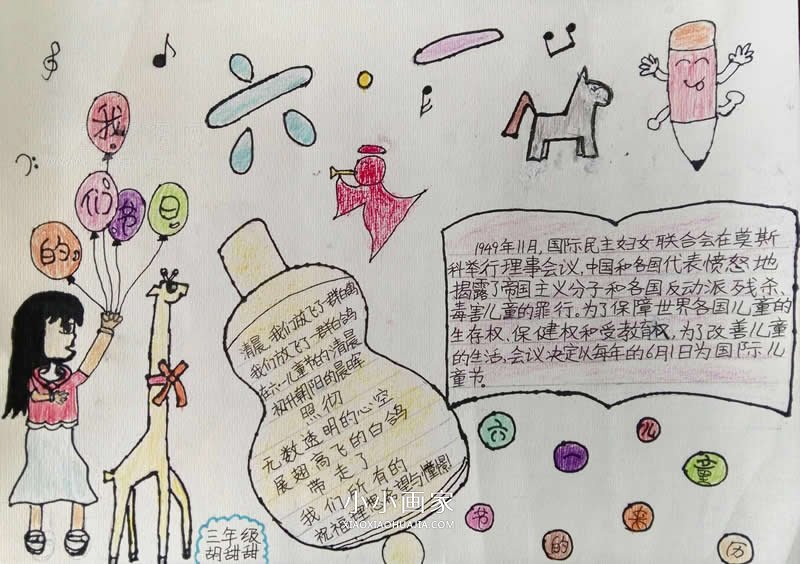 六·一
我们的节日
清晨,我们放飞了一群白鸽
我们放飞了一群白鸽
在六·一儿童节的清晨
初升朝阳的晨晖
照彻
无数透明的心空
展翅高飞的白鸽
带走了
我们所有的
祝福理想希望与憧憬
1949年11月,国际民主妇女联合会在莫斯
科举行理事会议,中国和各国代表愤怒地
揭露了帝国主义分子和各国反动派残杀、
毒害儿童的罪行。为了保障世界各国儿童的
生存权、保健权和受教育权,为了改善儿童
的生活,会议决定以每年的6月1日为国际儿
童节。
六一儿童
节的来历
三年级
胡甜甜
小小画家
XIAOXIAOHUAJIA.COM